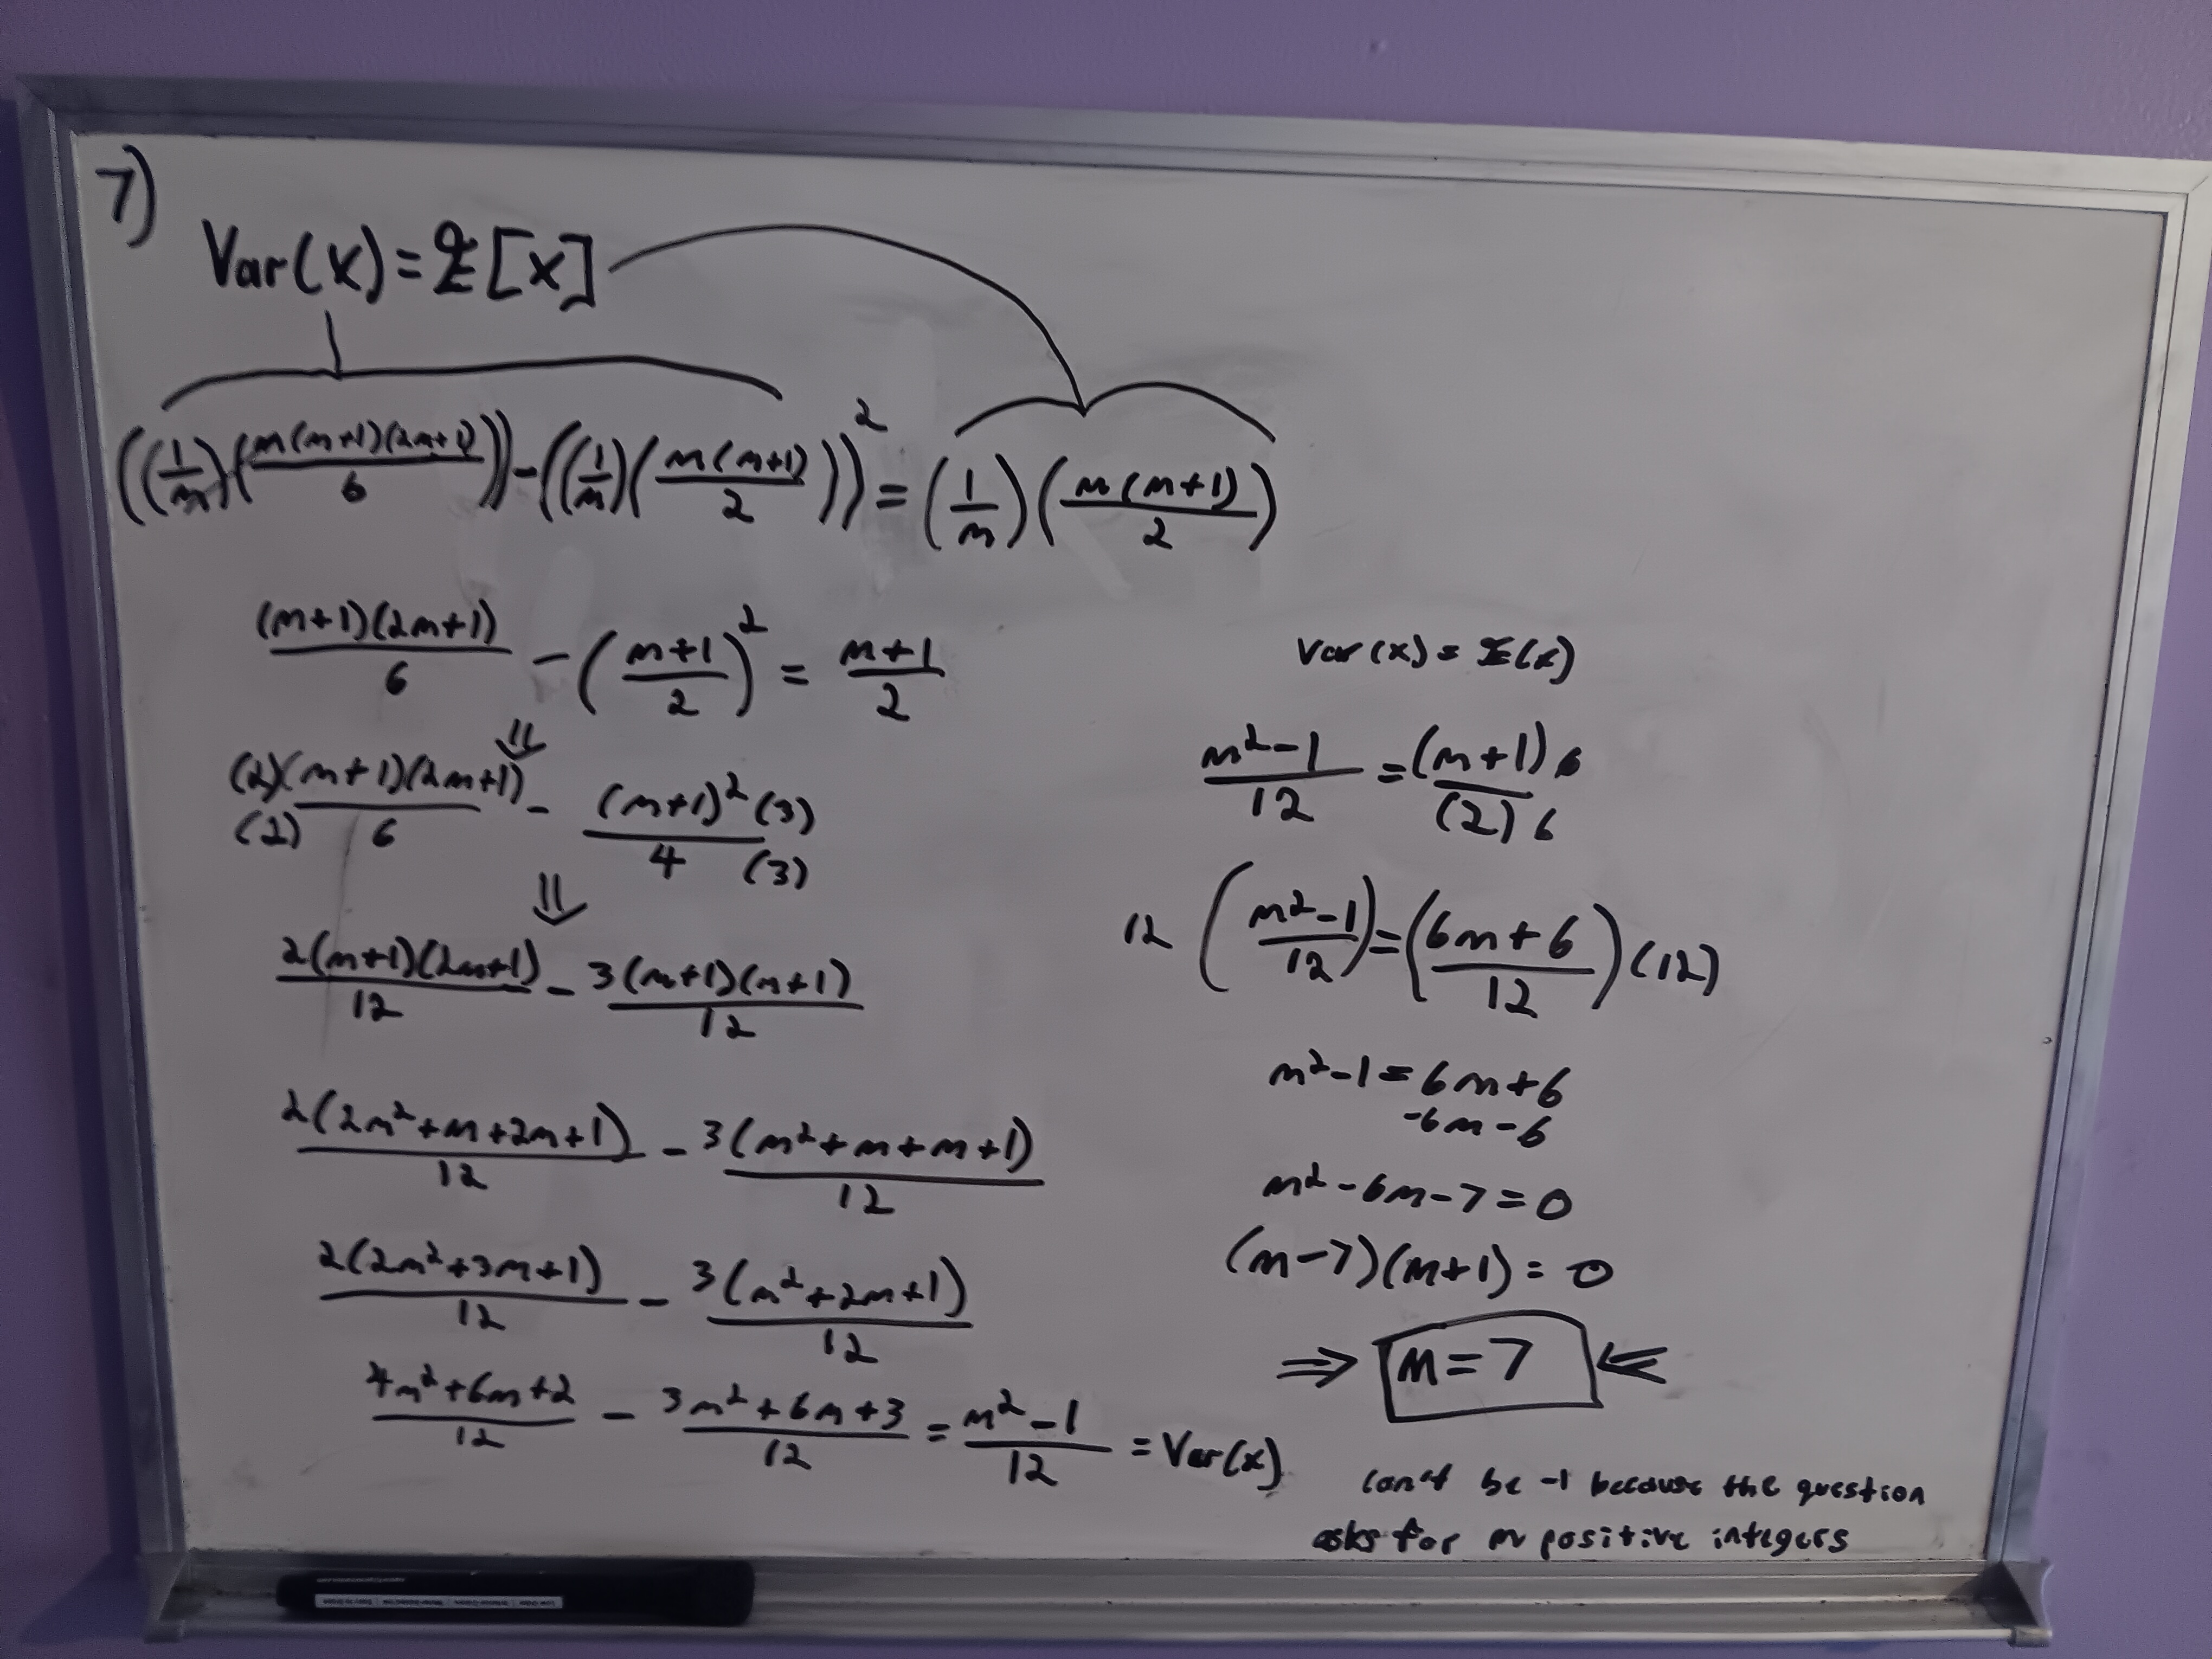 7)
Var(x) = E[x]
((1/m)(m(m+1)(2m+1)/6)) - ((1/m)(m(m+1)/2))² = (1/m)(m(m+1)/2)
(m+1)(2m+1)/6 - (m+1/2)² = m+1/2
⇓
(2)(m+1)(2m+1)/(2)6 - (m+1)²(3)/4(3)
⇓
2(m+1)(2m+1)/12 - 3(m+1)(m+1)/12
2(2m²+m+2m+1)/12 - 3(m²+m+m+1)/12
2(2m²+3m+1)/12 - 3(m²+2m+1)/12
4m²+6m+2/12 - 3m²+6m+3/12 = m²-1/12 = Var(x)
Var(x) = E(x)
m²-1/12 = (m+1)6/(2)6
12(m²-1/12) = (6m+6/12)(12)
m²-1 = 6m+6
-6m-6
m²-6m-7=0
(m-7)(m+1)=0
⇒ m=7 ⇐
can't be -1 because the question
asks for m positive integers